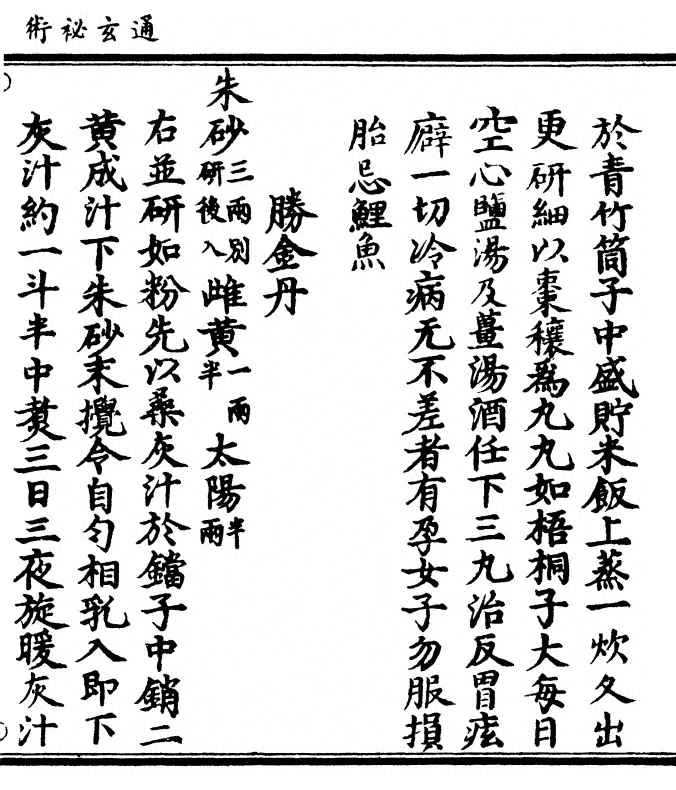 通玄祕術
於青竹筒子中盛貯米飯上蒸一炊久出
更研細以棗穰爲丸丸如梧桐子大每日
空心鹽湯及薑湯酒任下三丸治反胃痃
癖一切冷病无不差者有孕女子勿服損
胎忌鯉魚
勝金丹
朱砂三兩別研後入雌黄一兩半太陽半兩
右並研如粉先以桑灰汁於鐺子中銷二
黄成汁下朱砂末攪令自匀相乳入即下
灰汁約一斗半中煑三日三夜旋暖灰汁